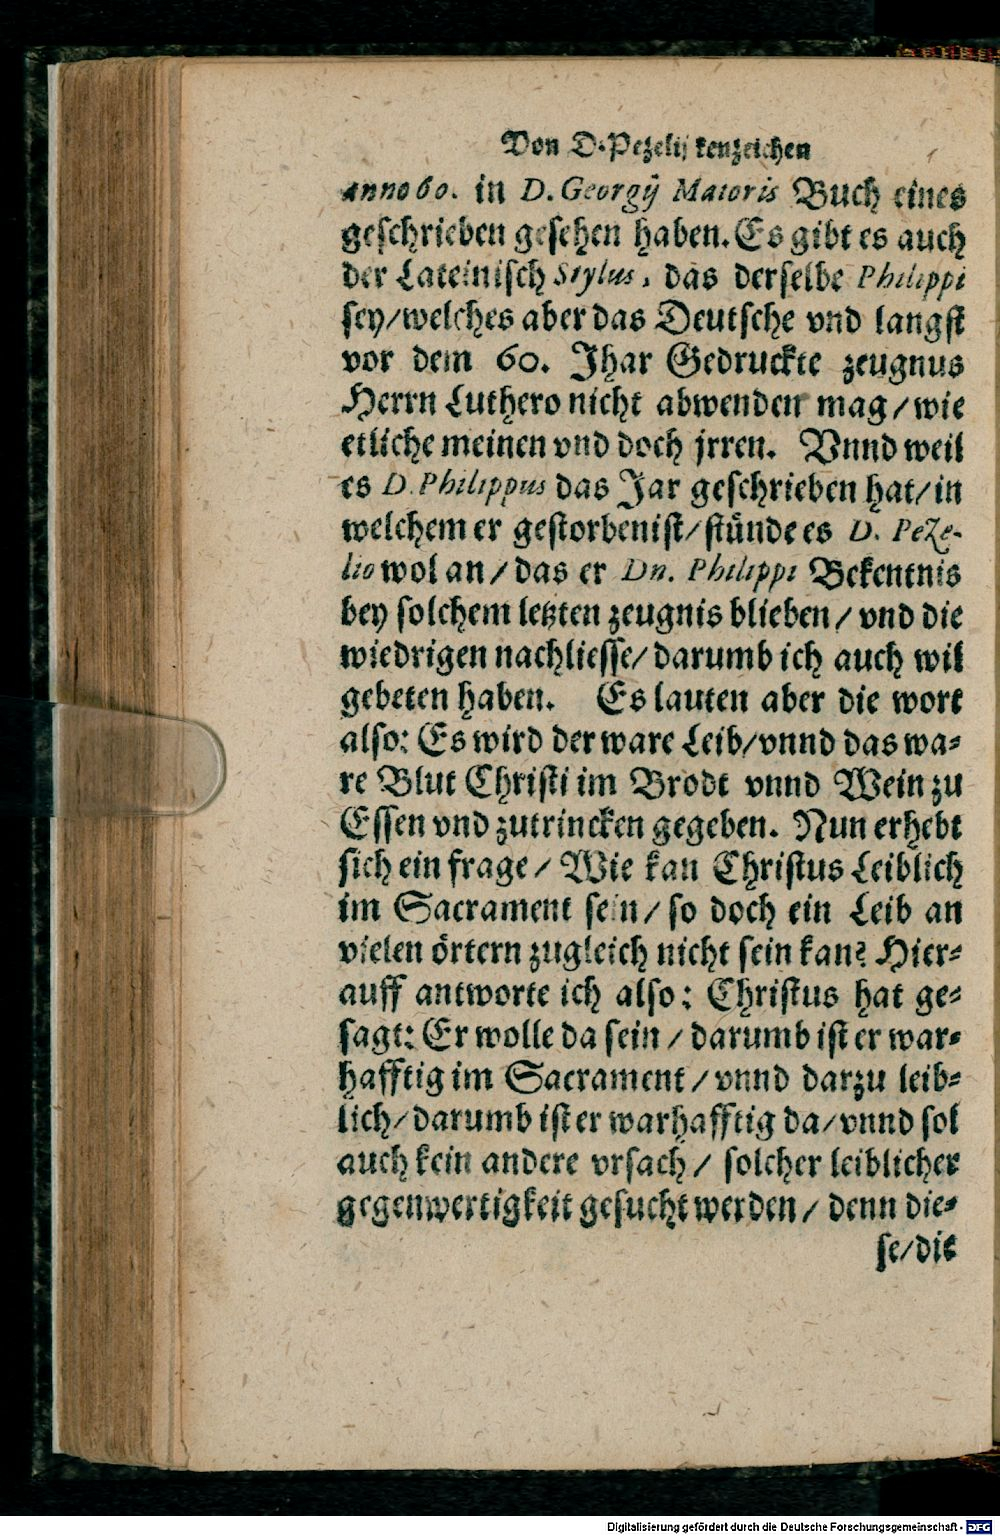 Von D. Pezelij kenzeichen
anno 60. in D. Georgij Maioris Buch eines
geschrieben gesehen haben. Es gibt es auch
der Lateinisch Stylus, das derselbe Philippi
sey/welches aber das Deutsche vnd langst
vor dem 60. Jhar Gedruckte zeugnus
Herrn Luthero nicht abwenden mag/wie
etliche meinen vnd doch jrren. Vnnd weil
es D. Philippus das Jar geschrieben hat/in
welchem er gestorben ist/stünde es D. Peze-
lio wol an/das er Dn. Philippi Bekentnis
bey solchem letzten zeugnis blieben/vnd die
wiedrigen nachliesse/darumb ich auch wil
gebeten haben. Es lauten aber die wort
also: Es wird der ware Leib/vnnd das wa-
re Blut Christi im Brodt vnnd Wein zu
Essen vnd zutrincken gegeben. Nun erhebt
sich ein frage/Wie kan Christus Leiblich
im Sacrament sein/so doch ein Leib an
vielen örtern zugleich nicht sein kan? Hier-
auff antworte ich also: Christus hat ge-
sagt: Er wolle da sein/darumb ist er war-
hafftig im Sacrament/vnnd darzu leib-
lich/darumb ist er warhafftig da/vnnd sol
auch kein andere vrsach/solcher leiblicher
gegenwertigkeit gesucht werden/denn die-
se/die
Digitalisierung gefördert durch die Deutsche Forschungsgemeinschaft - DFG